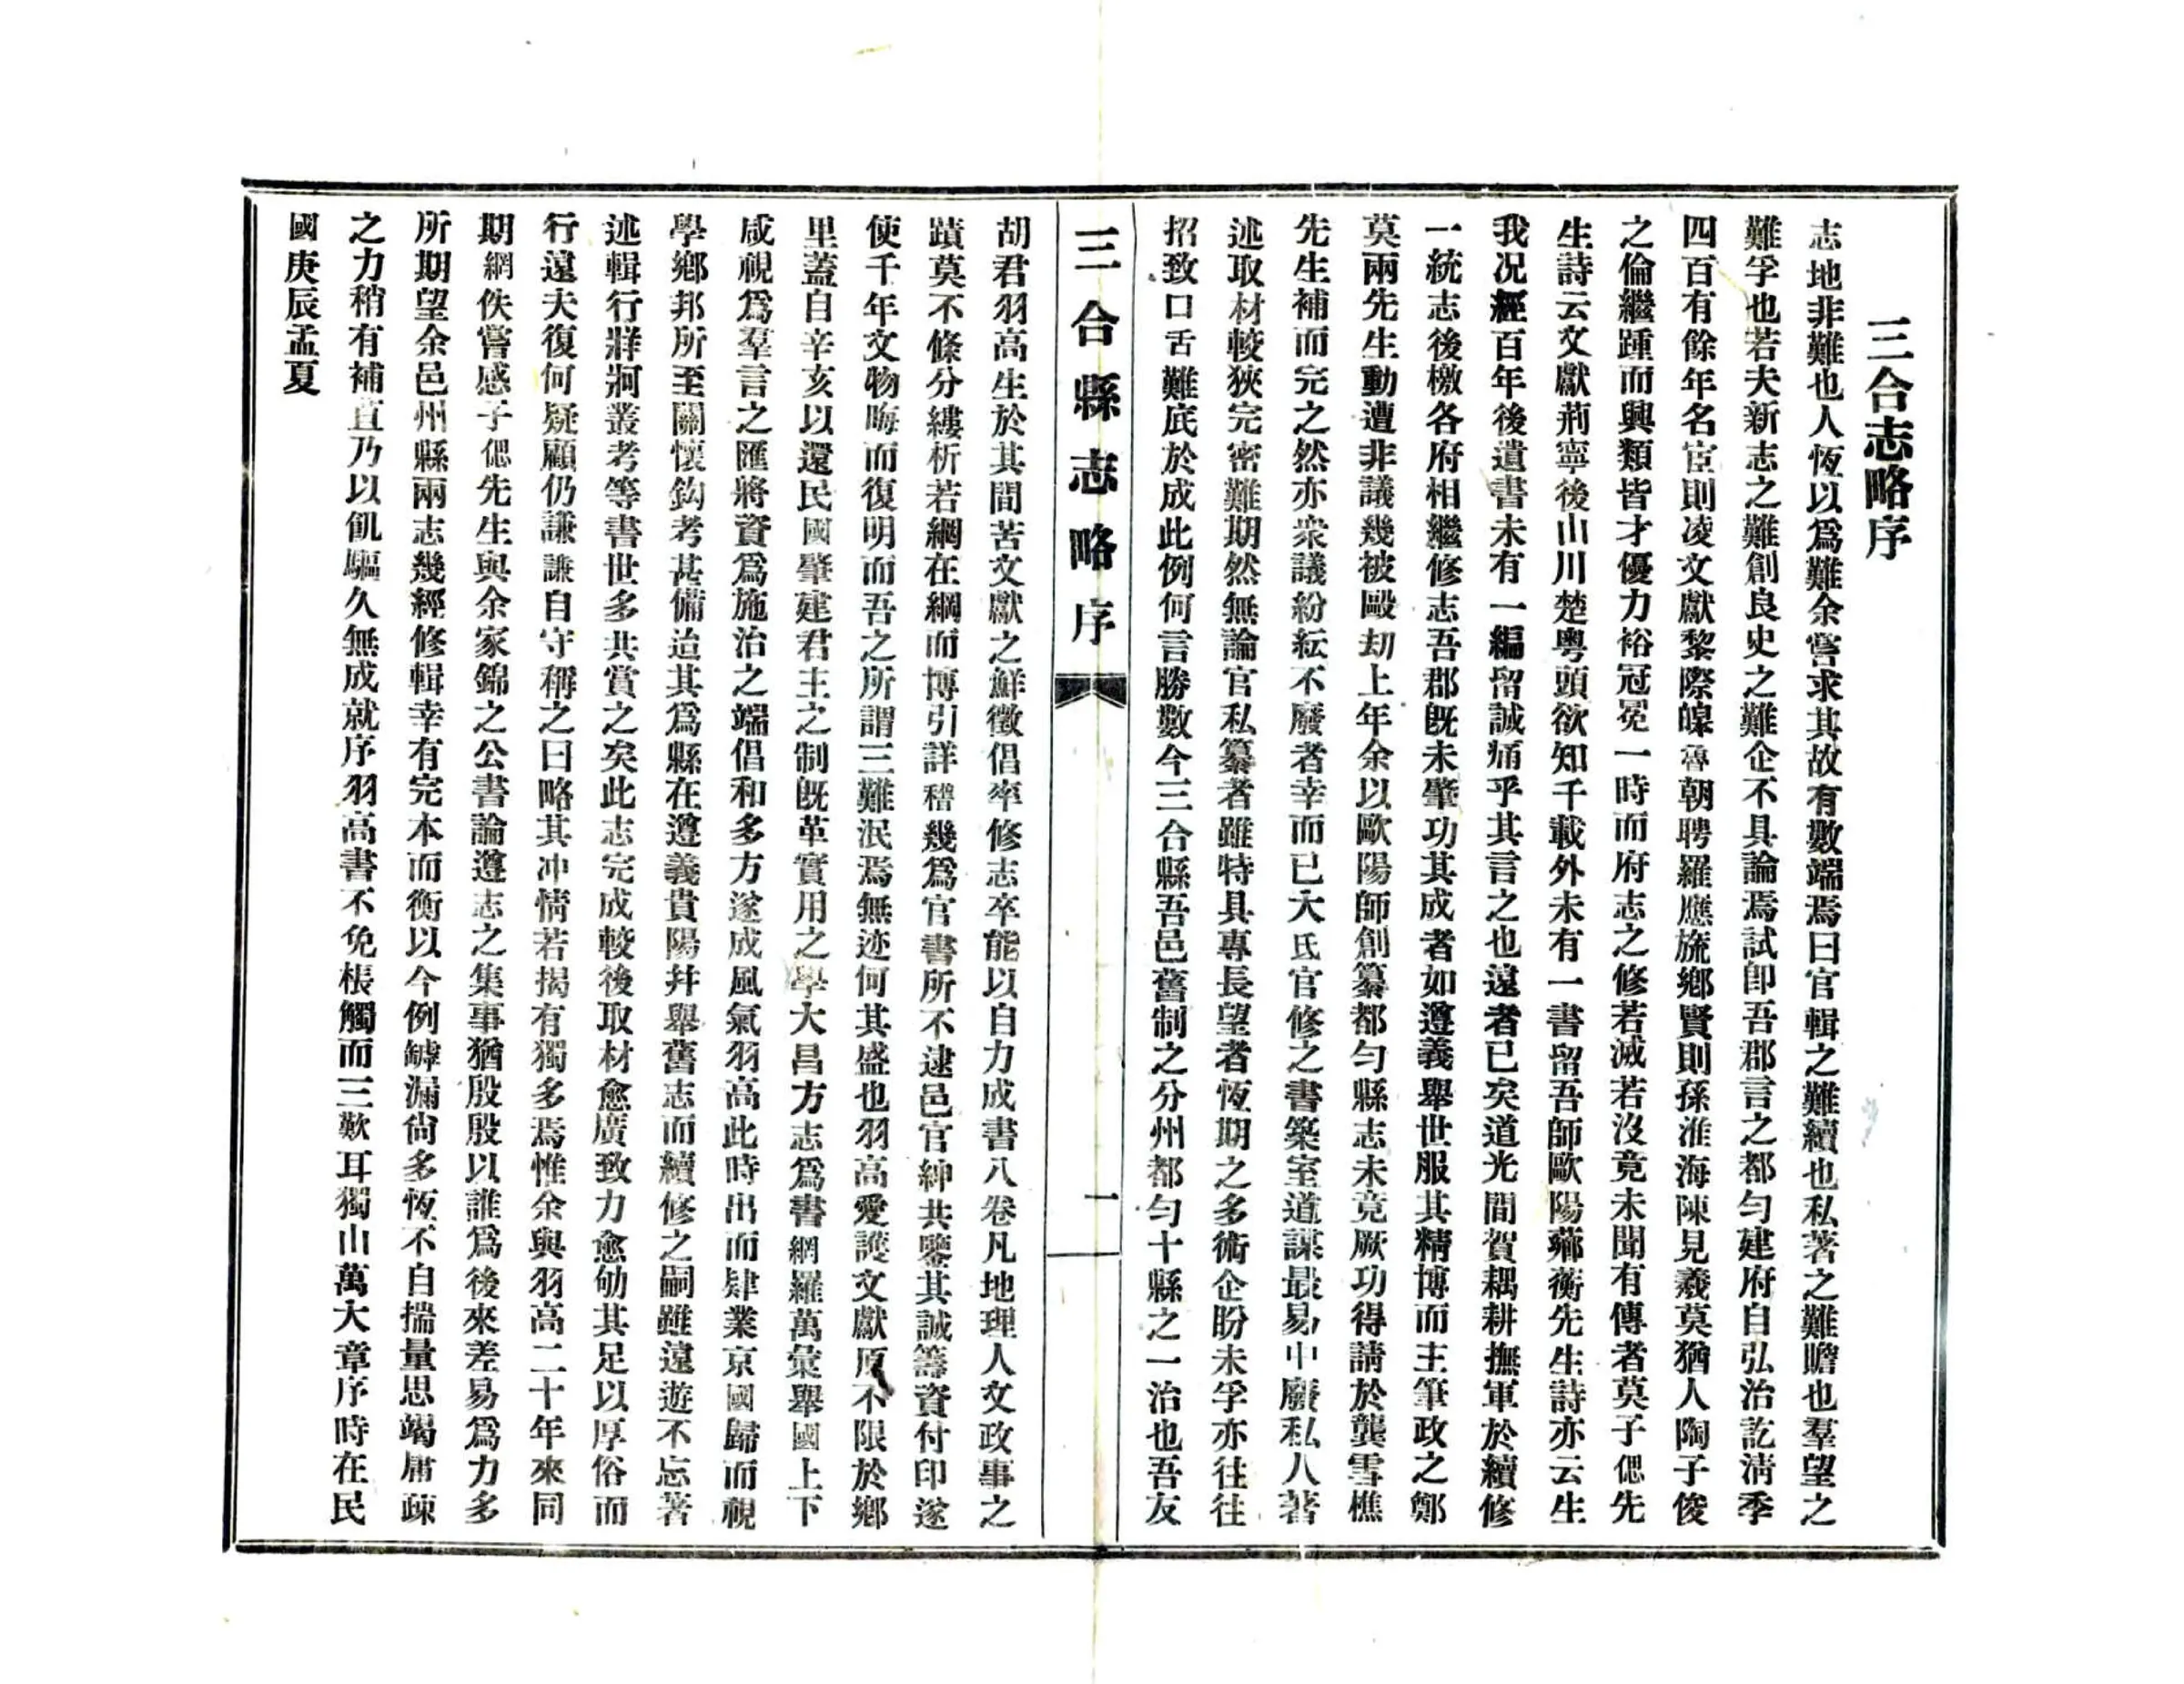 三合志略序
志地非難也人恆以爲難余嘗求其故有數端焉曰官輯之難續也私著之難贍也羣望之
難孚也若夫新志之難創良史之難企不具論焉試卽吾郡言之都勻建府自弘治訖淸季
四百有餘年名宦則凌文獻黎際皥魯朝聘羅應旒鄉賢則孫淮海陳見羲莫猶人陶子俊
之倫繼踵而興類皆才優力裕冠冕一時而府志之修若滅若沒竟未聞有傳者莫子偲先
生詩云文獻荊寧後山川楚粵頭欲知千載外未有一書留吾師歐陽薌蘅先生詩亦云生
我況經百年後遺書未有一編留誠痛乎其言之也遠者已矣道光間賀耦耕撫軍於續修
一統志後檄各府相繼修志吾郡旣未肇功其成者如遵義舉世服其精博而主筆政之鄭
莫兩先生動遭非議幾被毆刧上年余以歐陽師創纂都勻縣志未竟厥功得請於龔雪樵
先生補而完之然亦衆議紛紜不廢者幸而已大氐官修之書築室道謀最易中廢私人著
述取材較狹完密難期然無論官私纂者雖特具專長望者恆期之多術企盼未孚亦往往
招致口舌難底於成此例何言勝數今三合縣吾邑舊制之分州都勻十縣之一治也吾友
三合縣志略序
一
胡君羽高生於其間苦文獻之鮮徵倡率修志卒能以自力成書八卷凡地理人文政事之
蹟莫不條分縷析若網在綱而博引詳稽幾爲官書所不逮邑官紳共鑒其誠籌資付印遂
使千年文物晦而復明而吾之所謂三難泯焉無迹何其盛也羽高愛護文獻原不限於鄉
里蓋自辛亥以還民國肇建君主之制旣革實用之學大昌方志爲書網羅萬彙舉國上下
咸視爲羣言之匯將資爲施治之端倡和多方遂成風氣羽高此時出而肄業京國歸而視
學鄉邦所至關懷鈎考甚備迨其爲縣在遵義貴陽幷舉舊志而續修之嗣雖遠遊不忘著
述輯行牂牁叢考等書世多共賞之矣此志完成較後取材愈廣致力愈劬其足以厚俗而
行遠夫復何疑顧仍謙謙自守稱之曰略其冲情若揭有獨多焉惟余與羽高二十年來同
期網佚嘗感子偲先生與余家錦之公書論遵志之集事猶殷殷以誰爲後來差易爲力多
所期望余邑州縣兩志幾經修輯幸有完本而衡以今例罅漏尙多恆不自揣量思竭庸疎
之力稍有補苴乃以飢驅久無成就序羽高書不免棖觸而三歎耳獨山萬大章序時在民
國庚辰孟夏